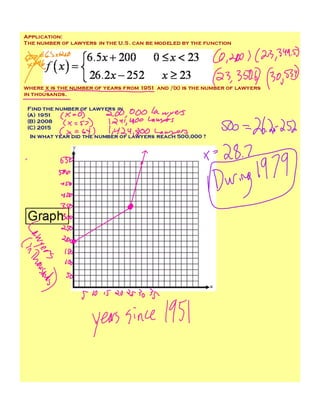 Application:
The number of lawyers in the U.S. can be modeled by the function
f(x) = { 6.5x + 200 0 ≤ x < 23
26.2x − 252 x ≥ 23
(0, 200) (23, 349.5)
(23, 350.6) (30, 534)
where x is the number of years from 1951 and f(x) is the number of lawyers
in thousands.
Find the number of lawyers in
(A) 1951 (x=0) 200,000 lawyers
(B) 2008 (x=57) 1,241,400 lawyers
(C) 2015 (x=64) 1,424,800 lawyers
In what year did the number of lawyers reach 500,000?
500 = 26.2x-252
x = 28.7
During 1979
y
Graph
Lawyers
(in thousands)
5 10 15 20 25 30 35
x
years since 1951